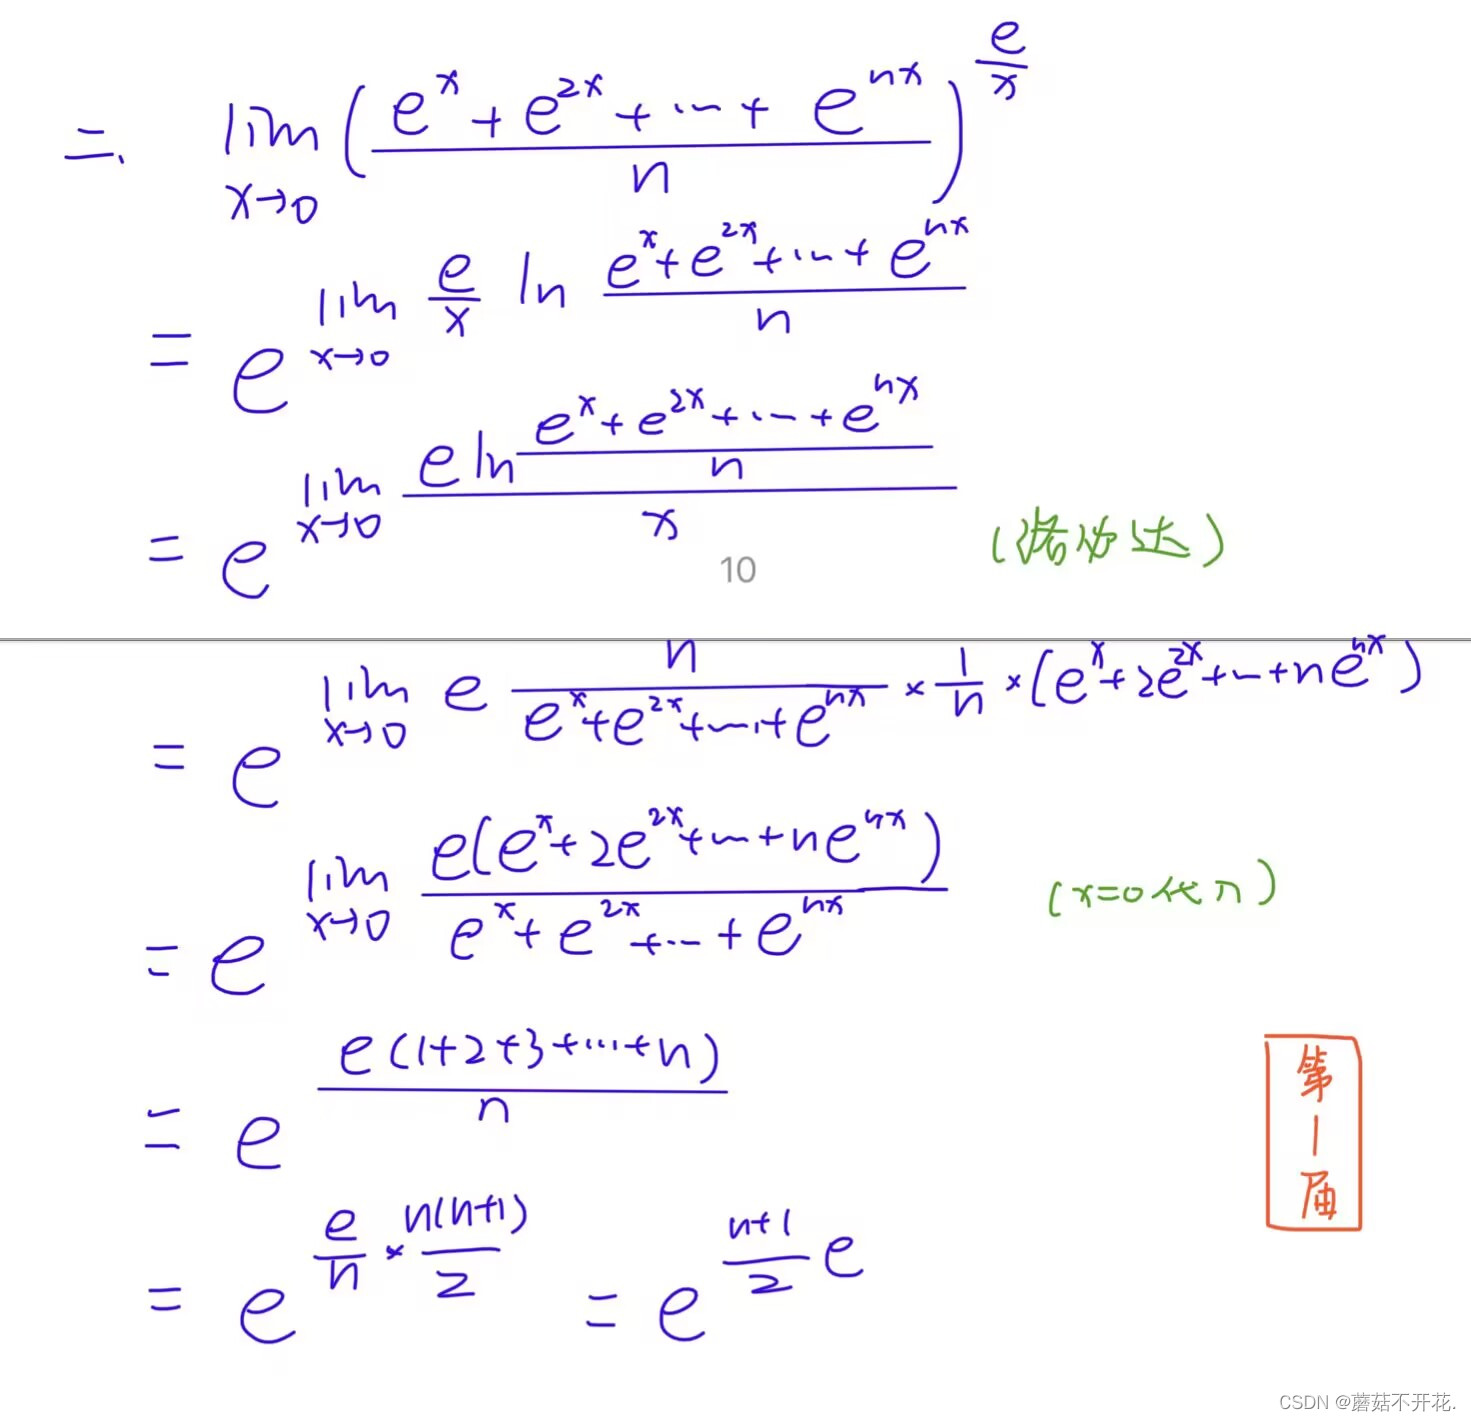 二、 lim_{x→0} ( (e^x + e^{2x} + ⋯ + e^{nx}) / n )^{e/x}
= e^{lim_{x→0} (e/x) ln ((e^x + e^{2x} + ⋯ + e^{nx}) / n)}
= e^{lim_{x→0} (e ln ((e^x + e^{2x} + ⋯ + e^{nx}) / n)) / x} (洛必达)
10
= e^{lim_{x→0} e (n / (e^x + e^{2x} + ⋯ + e^{nx})) × (1/n) × (e^x + 2e^{2x} + ⋯ + ne^{nx})}
= e^{lim_{x→0} (e(e^x + 2e^{2x} + ⋯ + ne^{nx})) / (e^x + e^{2x} + ⋯ + e^{nx})} (x=0代入)
= e^{(e(1+2+3+⋯+n)) / n}
= e^{(e/n) × (n(n+1)/2)} = e^{((n+1)/2) e}
第
1
届
CSDN @蘑菇不开花.